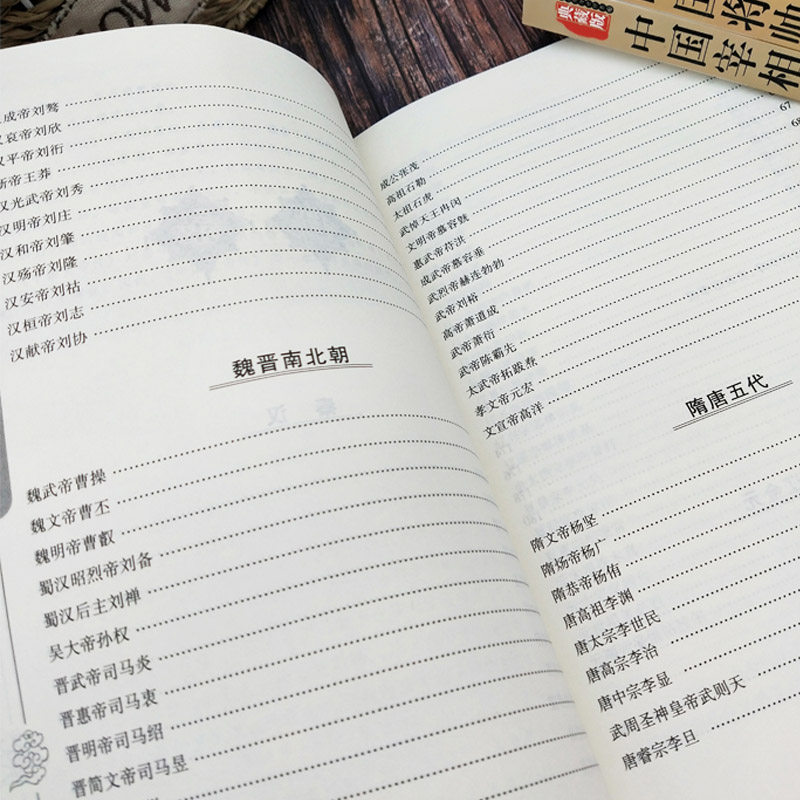 成帝刘骜
汉哀帝刘欣
汉平帝刘衎
新帝王莽
汉光武帝刘秀
汉明帝刘庄
汉和帝刘肇
汉殇帝刘隆
汉安帝刘祜
汉桓帝刘志
汉献帝刘协
魏晋南北朝
魏武帝曹操
魏文帝曹丕
魏明帝曹叡
蜀汉昭烈帝刘备
蜀汉后主刘禅
吴大帝孙权
晋武帝司马炎
晋惠帝司马衷
晋明帝司马绍
晋简文帝司马昱
成公张茂
高祖石勒
太祖石虎
武悼天王冉闵
文明帝慕容皝
惠武帝苻洪
成武帝慕容垂
武烈帝赫连勃勃
武帝刘裕
高帝萧道成
武帝萧衍
武帝陈霸先
太武帝拓跋焘
孝文帝元宏
文宣帝高洋
67
隋唐五代
隋文帝杨坚
隋炀帝杨广
隋恭帝杨侑
唐高祖李渊
唐太宗李世民
唐高宗李治
唐中宗李显
武周圣神皇帝武则天
唐睿宗李旦
典藏版
中国宰相
国将帅